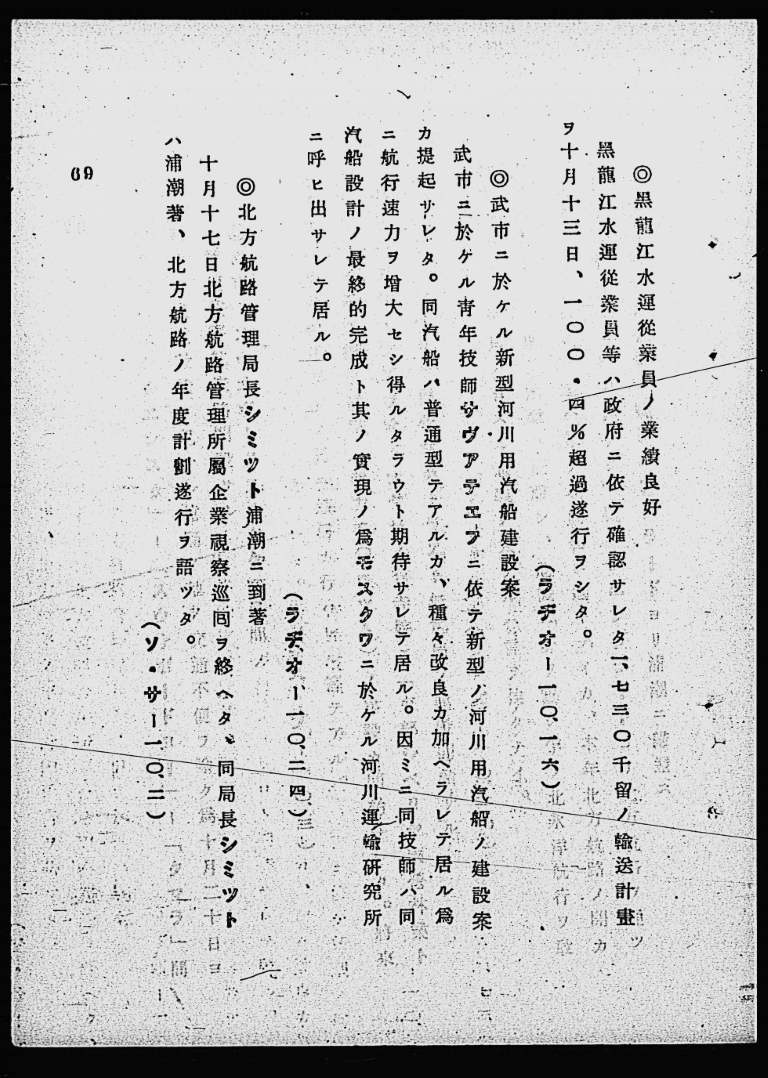 ◎黑龍江水運從業員ノ業績良好
黑龍江水運從業員等ハ政府ニ依テ確認サレタ一、七三〇千留ノ輸送計畫
ヲ十月十三日、一〇〇・四％超過遂行ヲシタ。
（ラヂオー一〇、一六）
◎武市ニ於ケル新型河川用汽船建設案
武市ニ於ケル青年技師サヴアテエフニ依テ新型ノ河川用汽船ノ建設案
カ提起サレタ。同汽船ハ普通型テアルカ、種々改良カ加ヘラレテ居ル爲
ニ航行速力ヲ增大セシ得ルタラウト期待サレテ居ル。因ミニ同技師ハ同
汽船設計ノ最終的完成ト其ノ實現ノ爲モスクワニ於ケル河川運輸研究所
ニ呼ヒ出サレテ居ル。
（ラヂオー一〇、二四）
◎北方航路管理局長シミツト浦潮ニ到著
十月十七日北方航路管理所屬企業視察巡囘ヲ終ヘタ同局長シミツト
ハ浦潮著、北方航路ノ年度計劃遂行ヲ語ツタ。
（ソ・サー一〇、二一）
69